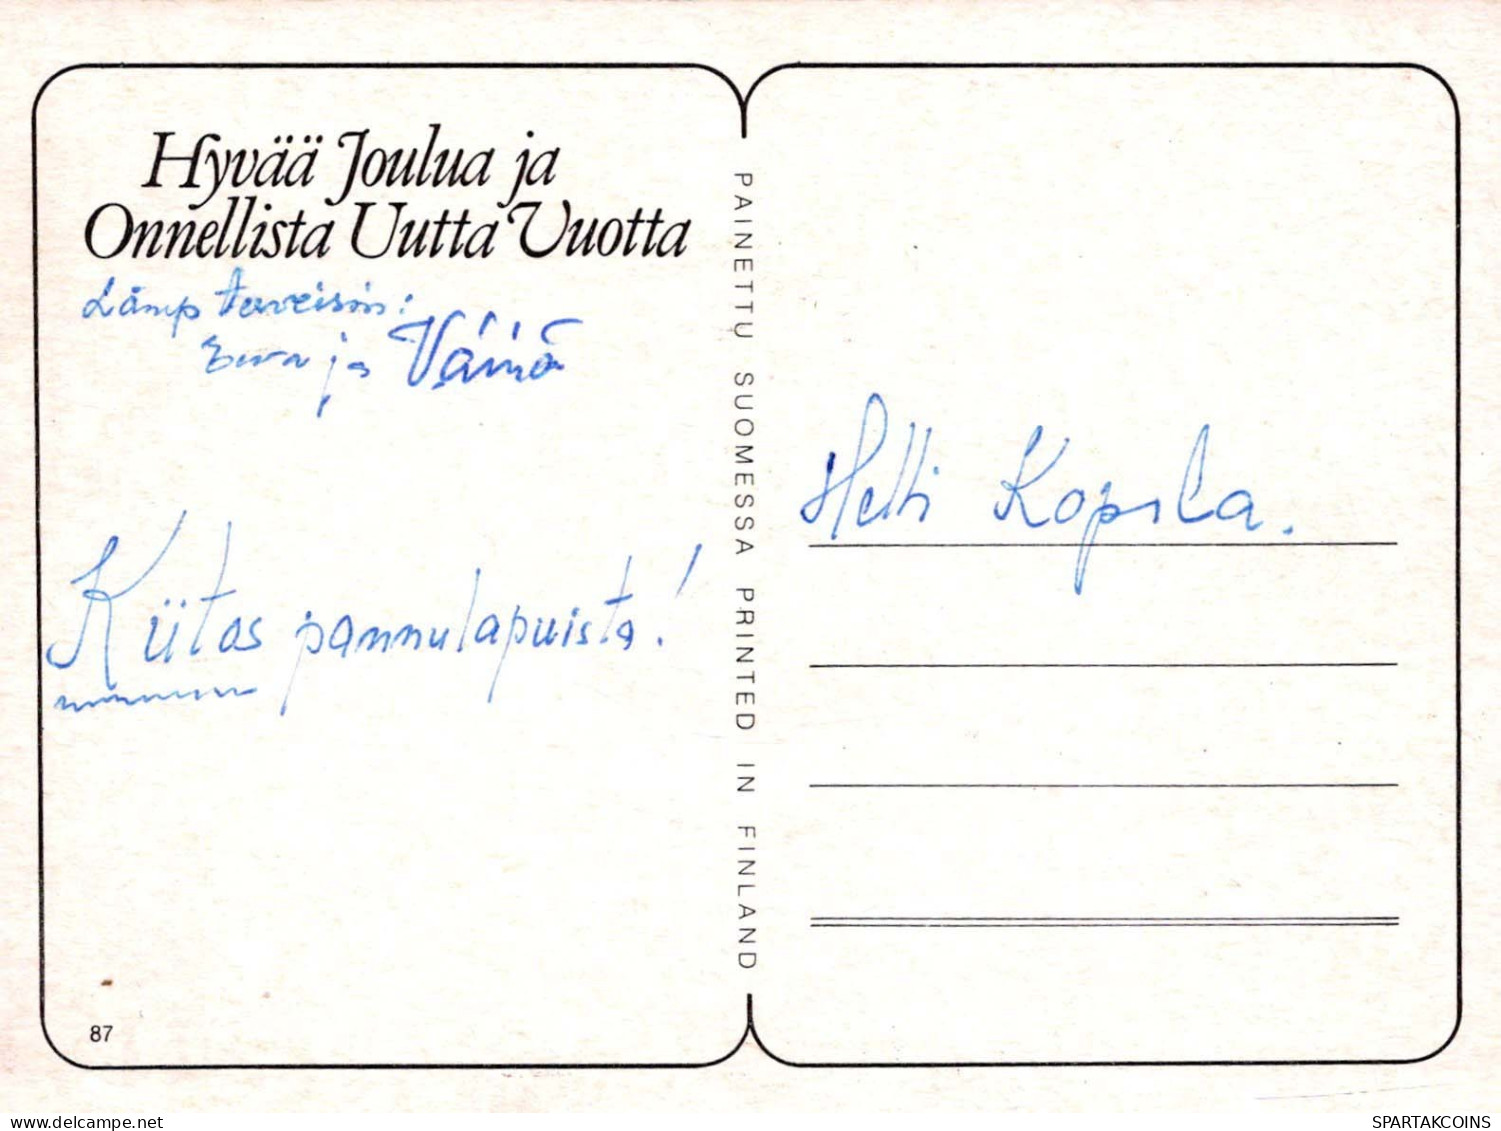 Hyvää Joulua ja
Onnellista Uutta Vuotta
Lämp terveisin:
Eeva ja Väinö
Kiitos pannulapuista!
PAINETTU SUOMESSA PRINTED IN FINLAND
Helli Kopsala.
87
delcampe.net
SPARTAKCOINS